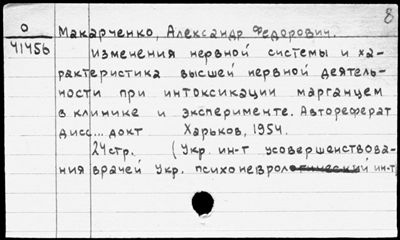 8
О
41456
Макарченко, Александр Федорович.
Изменения нервной системы и ха-
рактеристика высшей нервной деятель-
ности при интоксикации марганцем
в клинике и эксперименте. Автореферат
дисс... докт Харьков, 1954.
24стр. (Укр. ин-т усовершенствова-
ния врачей Укр. психоневрологический ин-т